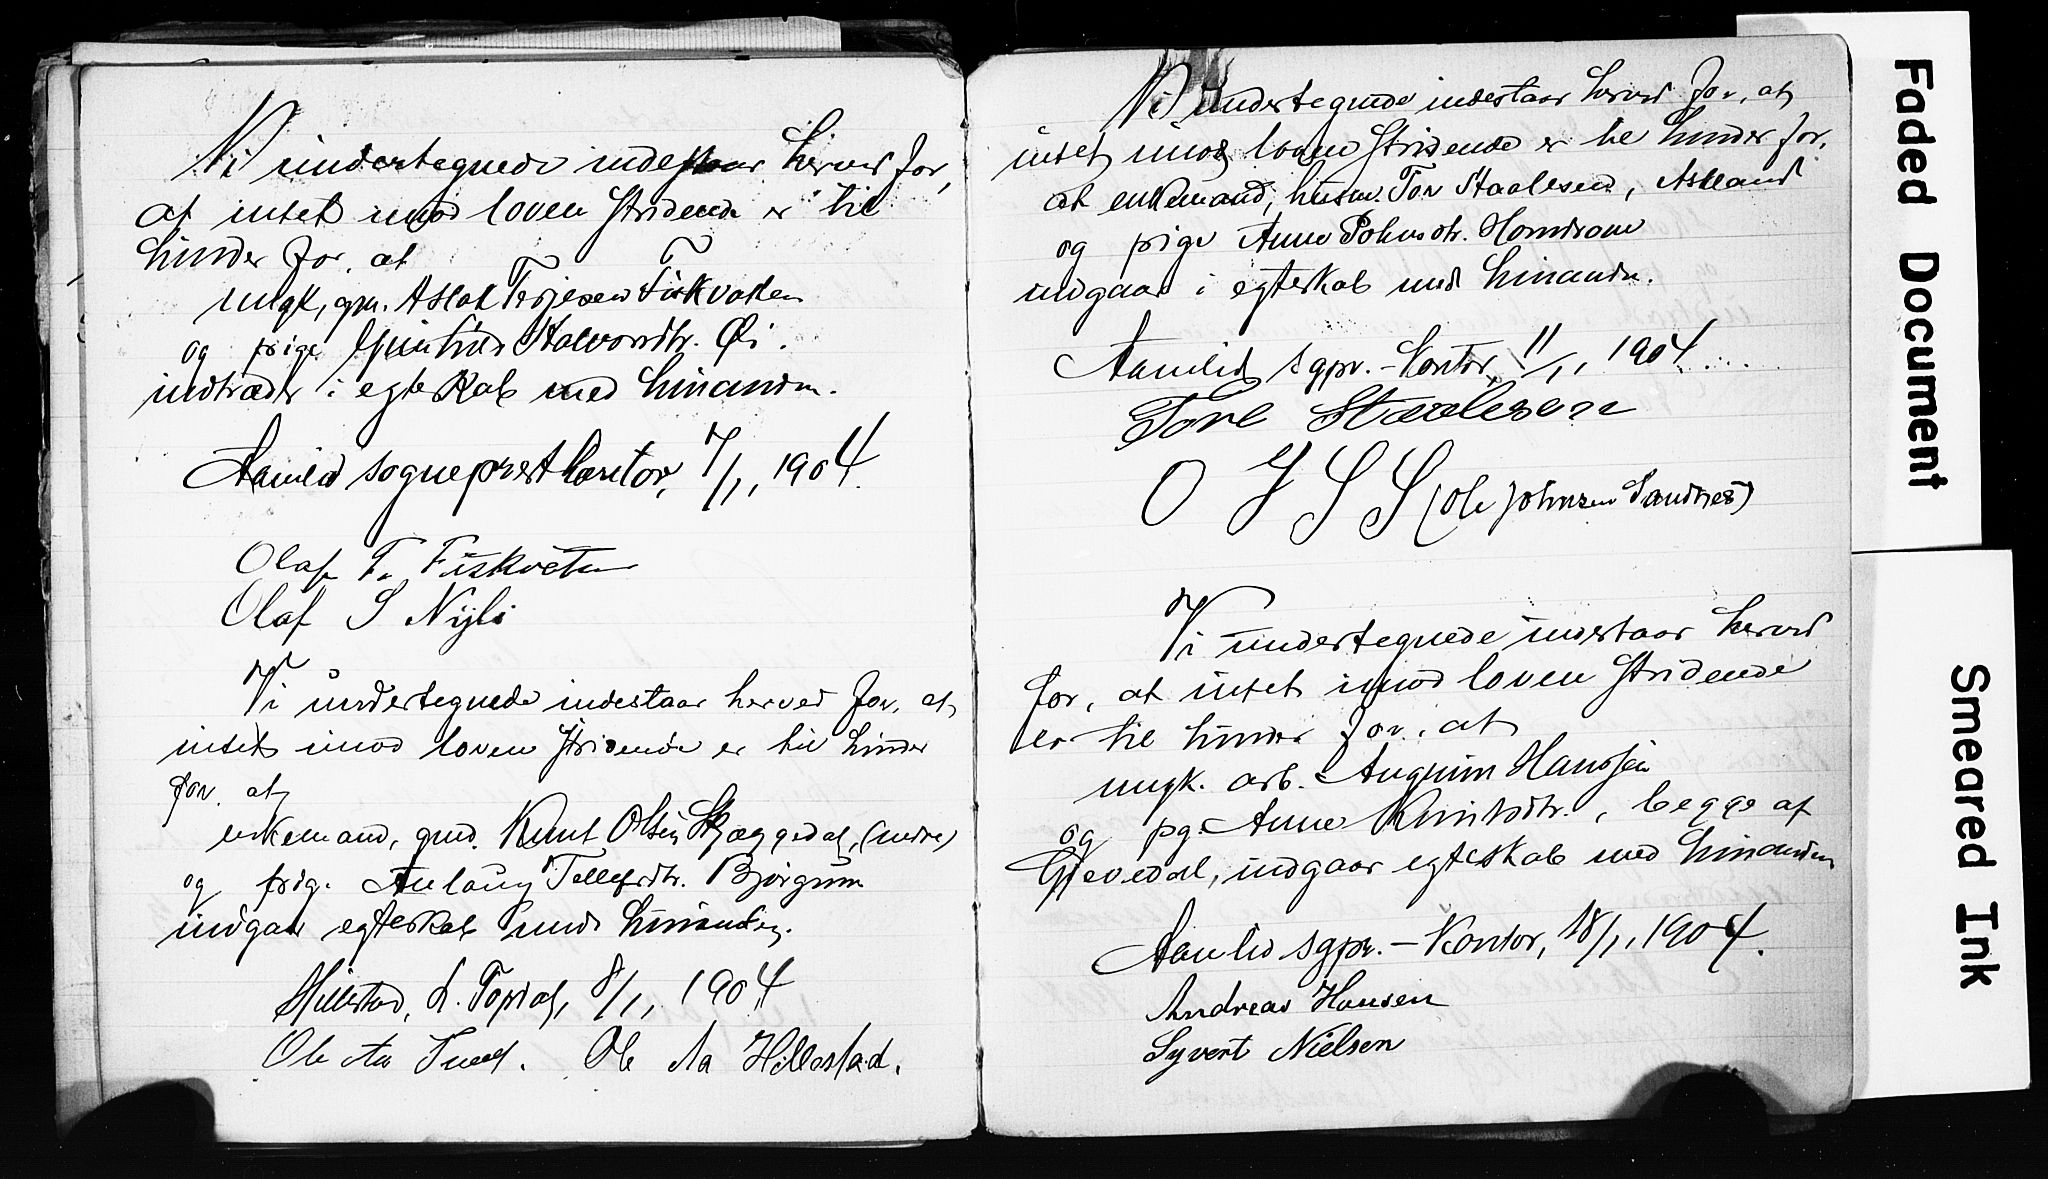 Vi undertegnede indestaar herved for,
at intet imod loven stridende er til
hinder for, at
ungk, gm. Aslak Terjesen Fiskvatten
og pige Gunhild Halvorsdtr. Øi.
indtræder i egteskab med hinanden.
Aamlid sogneprestkontor, 7/1, 1904.
Olaf T. Fiskvatn
Olaf S Nyli
Vi undertegnede indestaar herved for, at
intet imod loven stridende er til hinder
for, at
enkemand, gmd. Knut Olsen Skjæggedal, (nedre)
og pige Anlaug Tellefsdtr. Bjorgum
indgaar egteskab med hinanden.
Hillestad, h. Topdal, 8/1, 1904
Ole Aa Hillestad.
Vi undertegnede indestaar herved for, at
intet imod loven stridende er til hinder for,
at enkemand, husm. Tor Staalesen, Askland
og pige Anne Johnsdtr. Homdrom
indgaar i egteskab med hinanden.
Aamlid sgpr.-kontor, 11/1, 1904
Tore Staalesen
O J S S (Ole Johnsen Sandnes)
Vi undertegnede indestaar herved
for, at intet imod loven stridende
er til hinder for, at
ungk. arb. Angrim Hanssen
og pg. Anne Knutsdtr., begge af
Gjevedal, indgaar egteskab med hinanden
Aamlid sgpr.-Kontor, 18/1, 1904.
Andreas Hansen
Syvert Nielsen
Faded Document
Smeared Ink